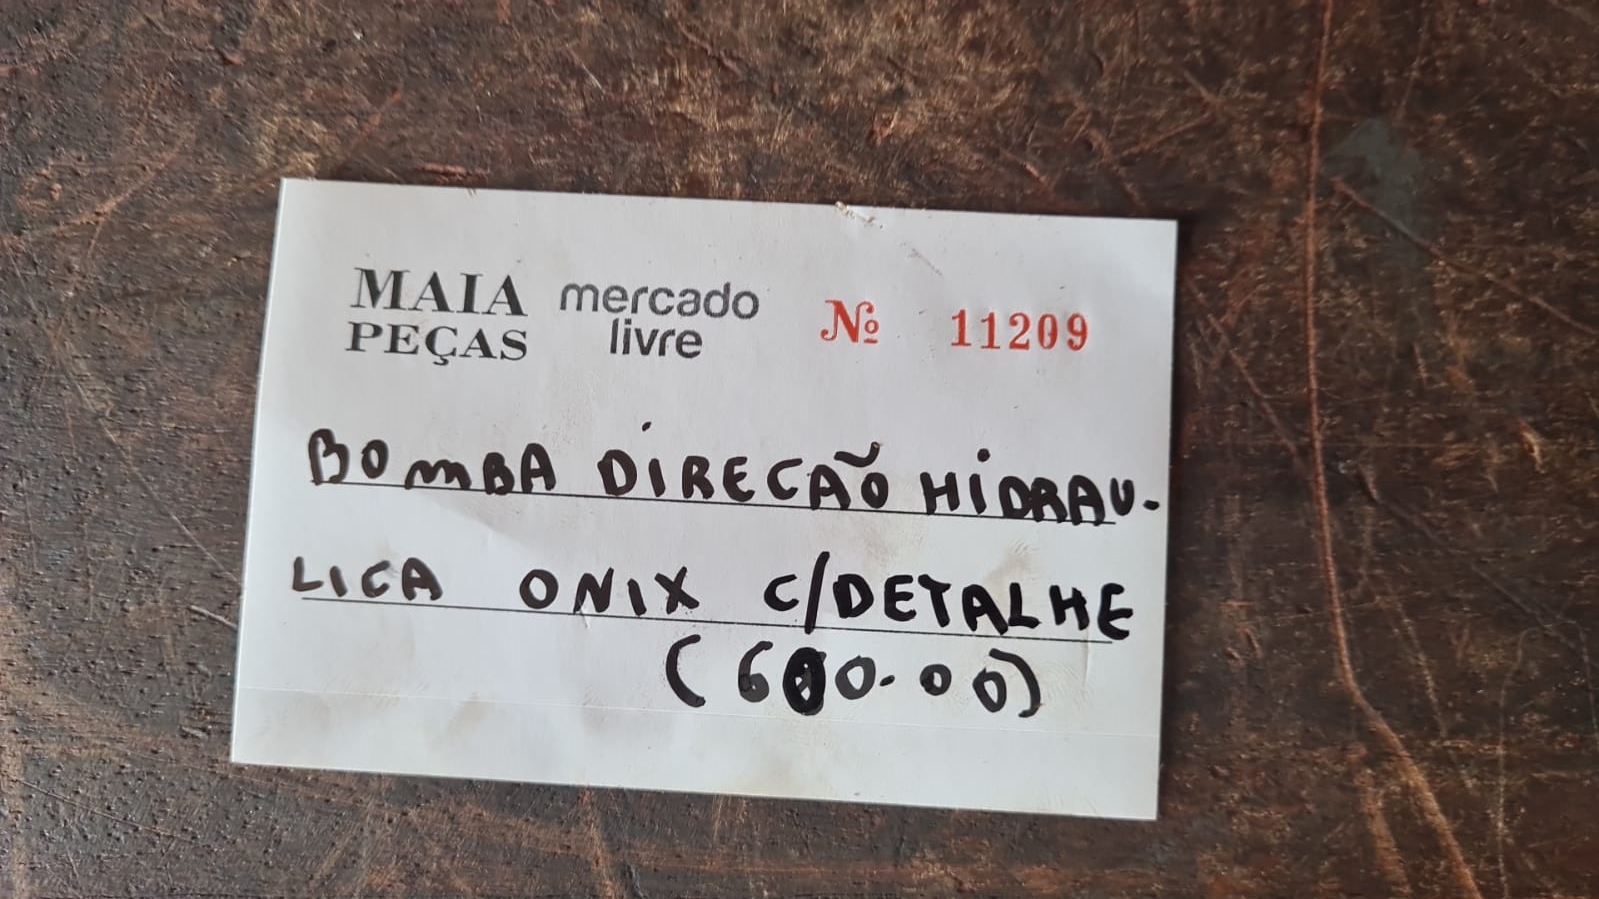 MAIA PEÇAS mercado livre Nº 11209
BOMBA DIRECÃO HIDRAU-
LICA ONIX C/DETALHE
(600.00)